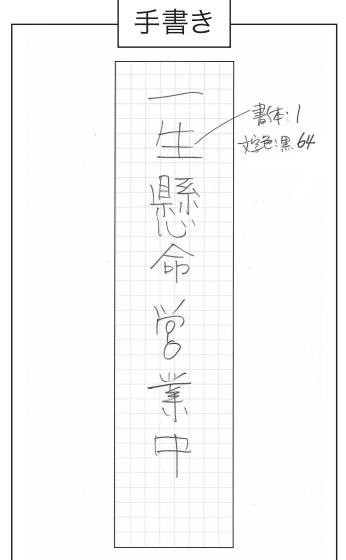 手書き
一生懸命営業中
書体:1
文字色:黒64